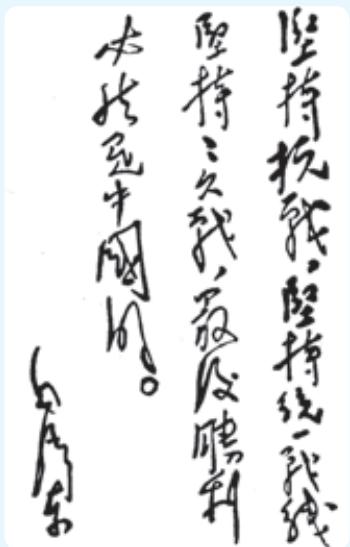 堅持抗戰，堅持統一戰線
堅持持久戰，最後勝利
必然是中國的。
毛澤東